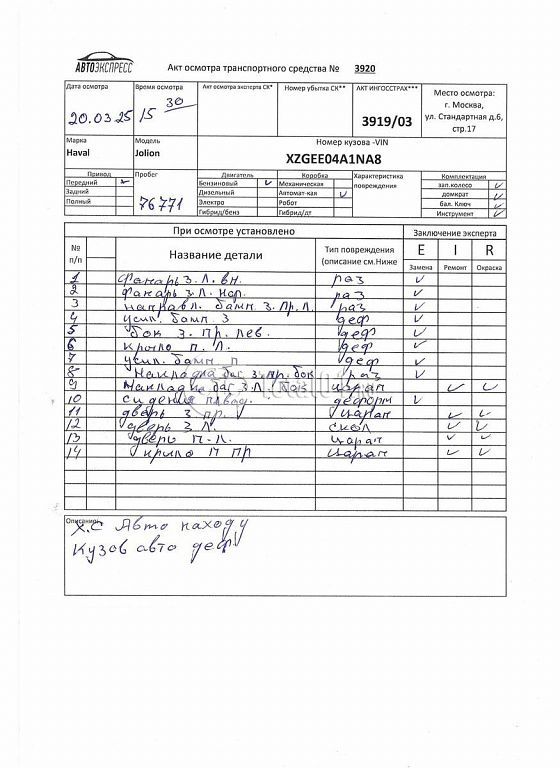 АВТОЭКСПРЕСС
Акт осмотра транспортного средства № 3920
Дата осмотра
20.03.25
Время осмотра
15 30
Акт осмотра эксперта СК*
Номер убытка СК**
АКТ ИНГОССТРАХ***
3919/03
Место осмотра:
г. Москва,
ул. Стандартная д.6,
стр.17
Марка
Haval
Модель
Jolion
Номер кузова -VIN
XZGEE04A1NA8
Привод
Передний ✓
Задний
Полный
Пробег
76771
Двигатель
Бензиновый ✓
Дизельный
Электро
Гибрид/бенз
Коробка
Механическая
Автомат-кая ✓
Робот
Гибрид/дт
Характеристика
повреждения
Комплектация
зап.колесо ✓
домкрат ✓
бал. Ключ ✓
Инструмент ✓
При осмотре установлено
Заключение эксперта
№
п/п
Название детали
Тип повреждения
(описание см.Ниже
E I R
Замена Ремонт Окраска
1 Фонарь З. Л. вн. раз ✓
2 Фонарь З. Л. нар. раз ✓
3 Направл. бамп. З. Пр. Л. раз ✓
4 усил. бамп. З деф ✓
5 бок З. Пр. лев. деф ✓
6 Крыло П. Л. деф ✓
7 усил. бамп. П деф ✓
8 Накладка баг. З. Пр. бок раз ✓
9 Накладка баг З. Л. бок царап ✓ ✓
10 сидение деформ ✓
11 дверь З пр. царап ✓ ✓
12 дверь З. Л. скол ✓ ✓
13 дверь П. Л. царап ✓ ✓
14 крыло П пр царап ✓ ✓
Описание:
Х.С Авто находу
Кузов авто деф